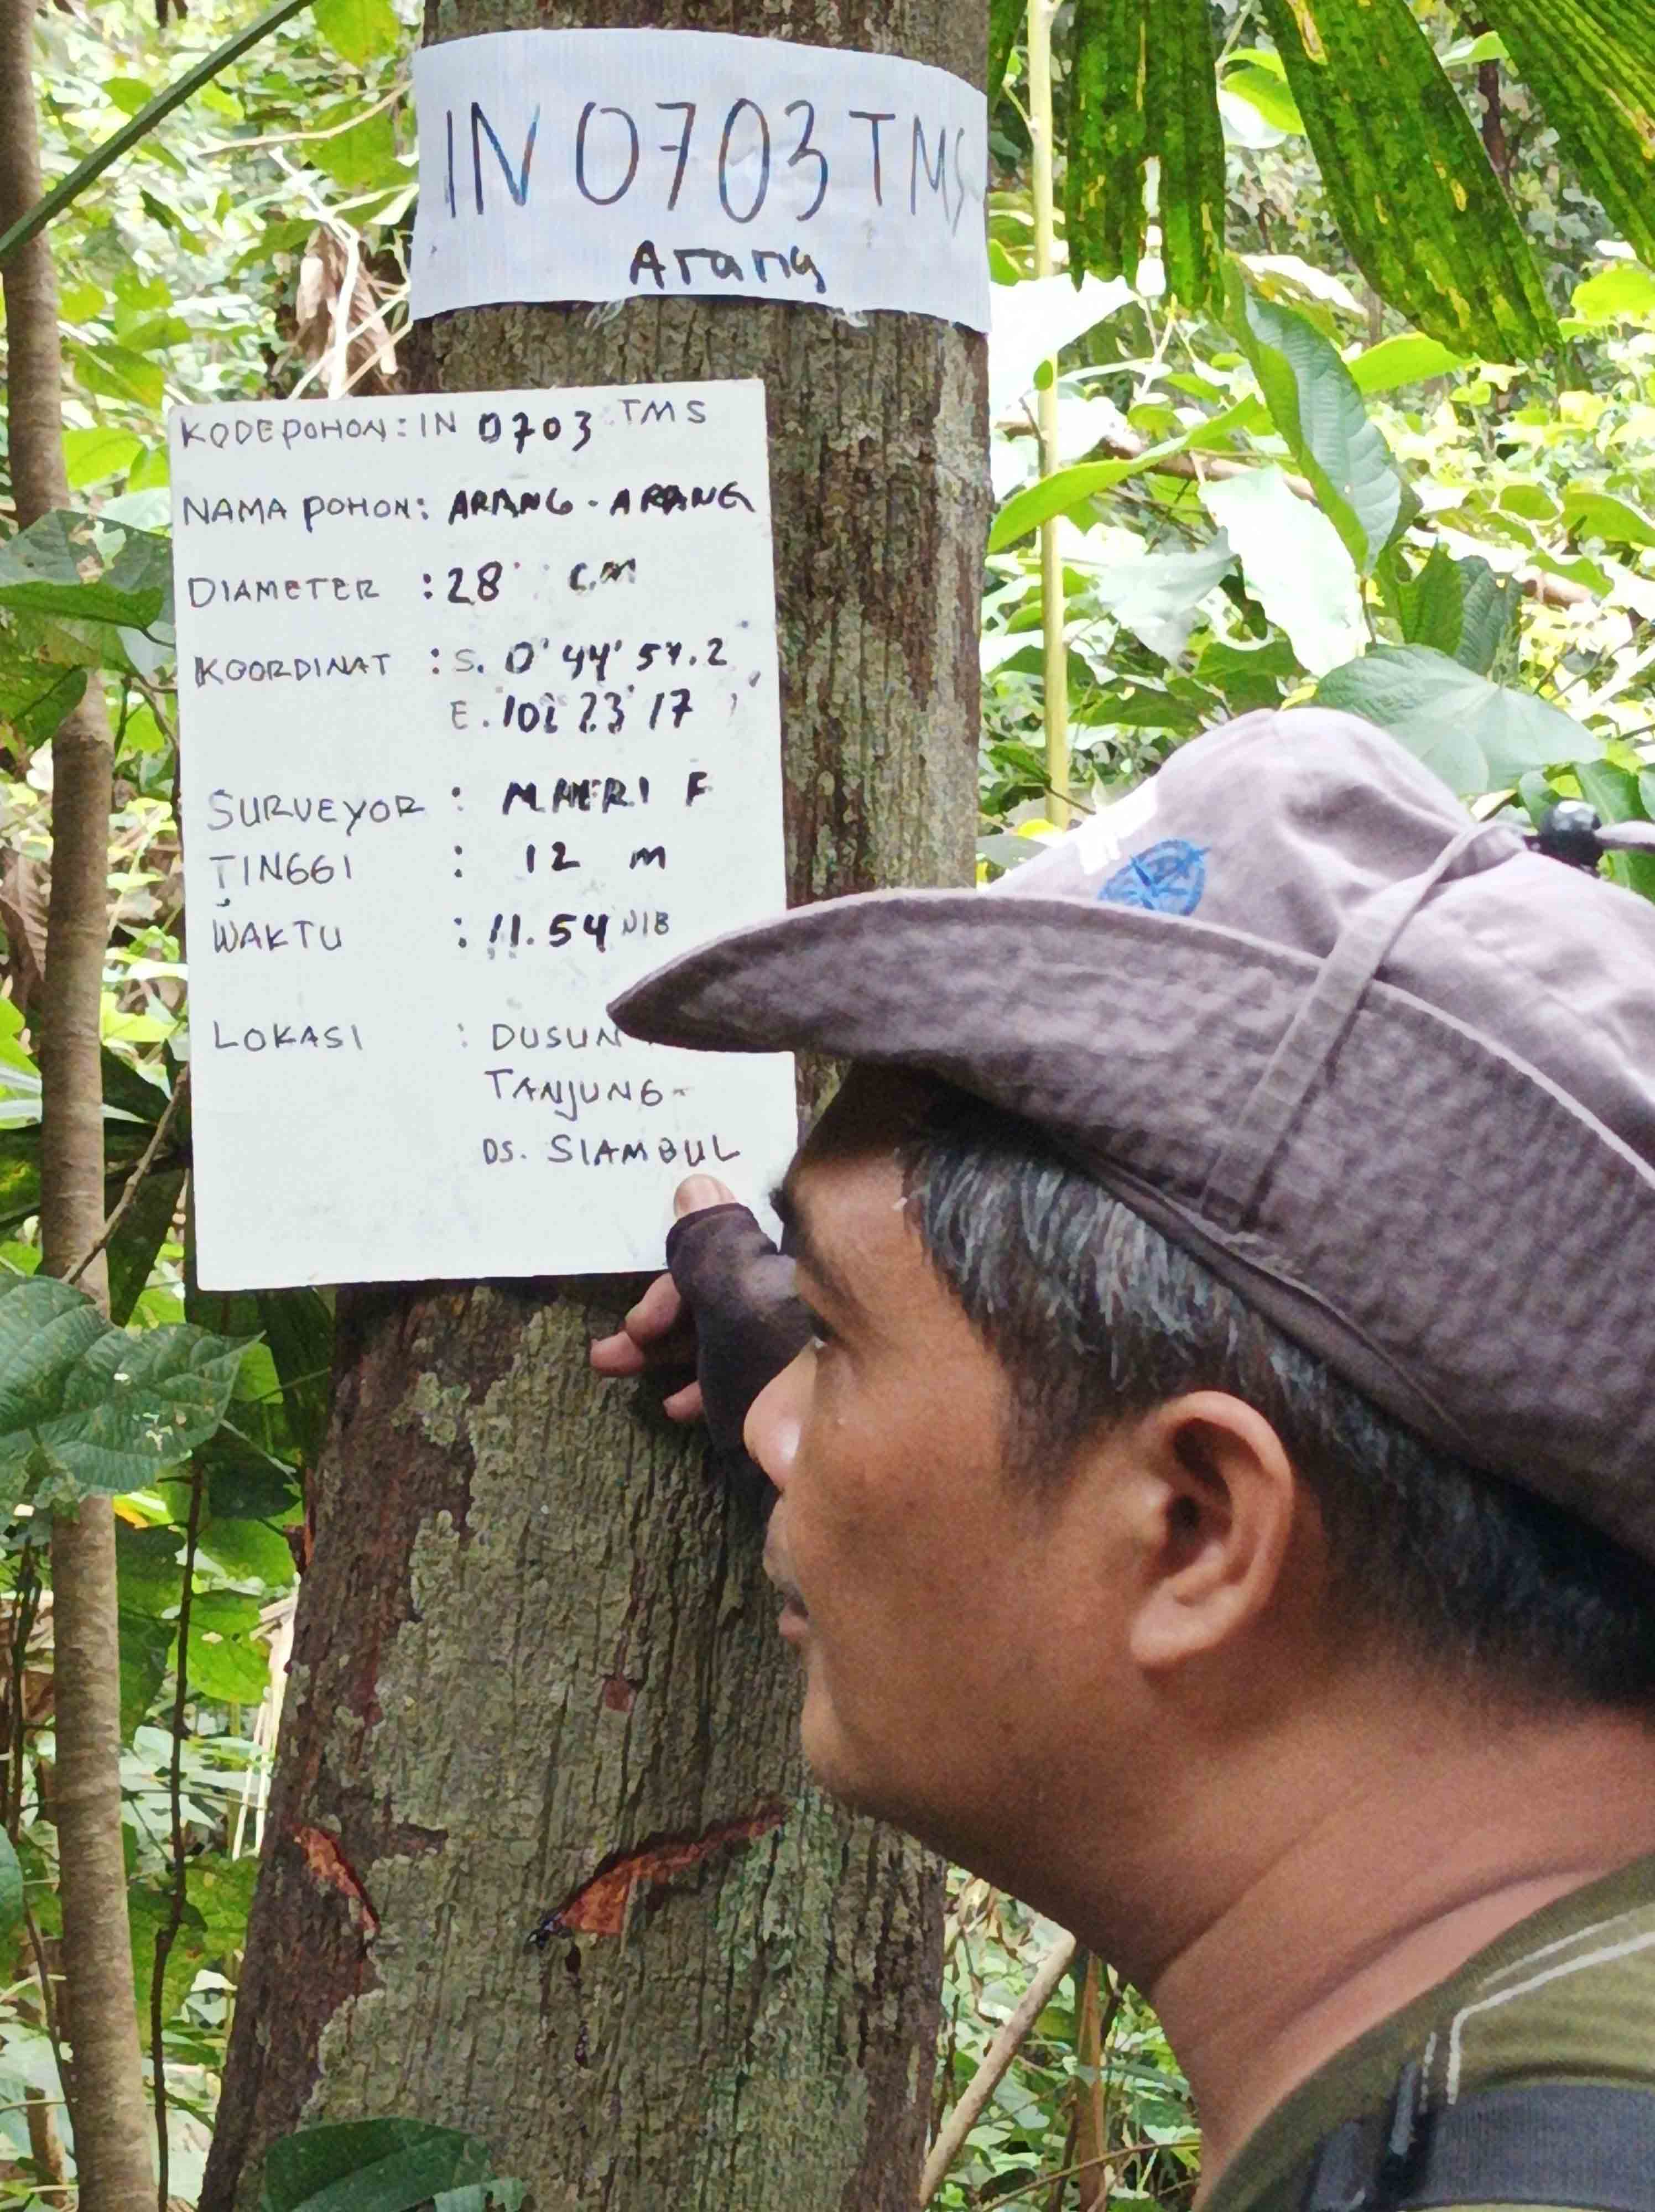 IN 0703 TMS
Arang
KODE POHON: IN 0703 TMS
NAMA POHON: ARANG-ARANG
DIAMETER : 28 CM
KOORDINAT : S. 0° 44'
E. 23' 17
SURVEYOR : F
TINGGI : 12 m
WAKTU : 11.54 WIB
LOKASI : DUSUN
TANJUNG-
DS. SIAMBUL